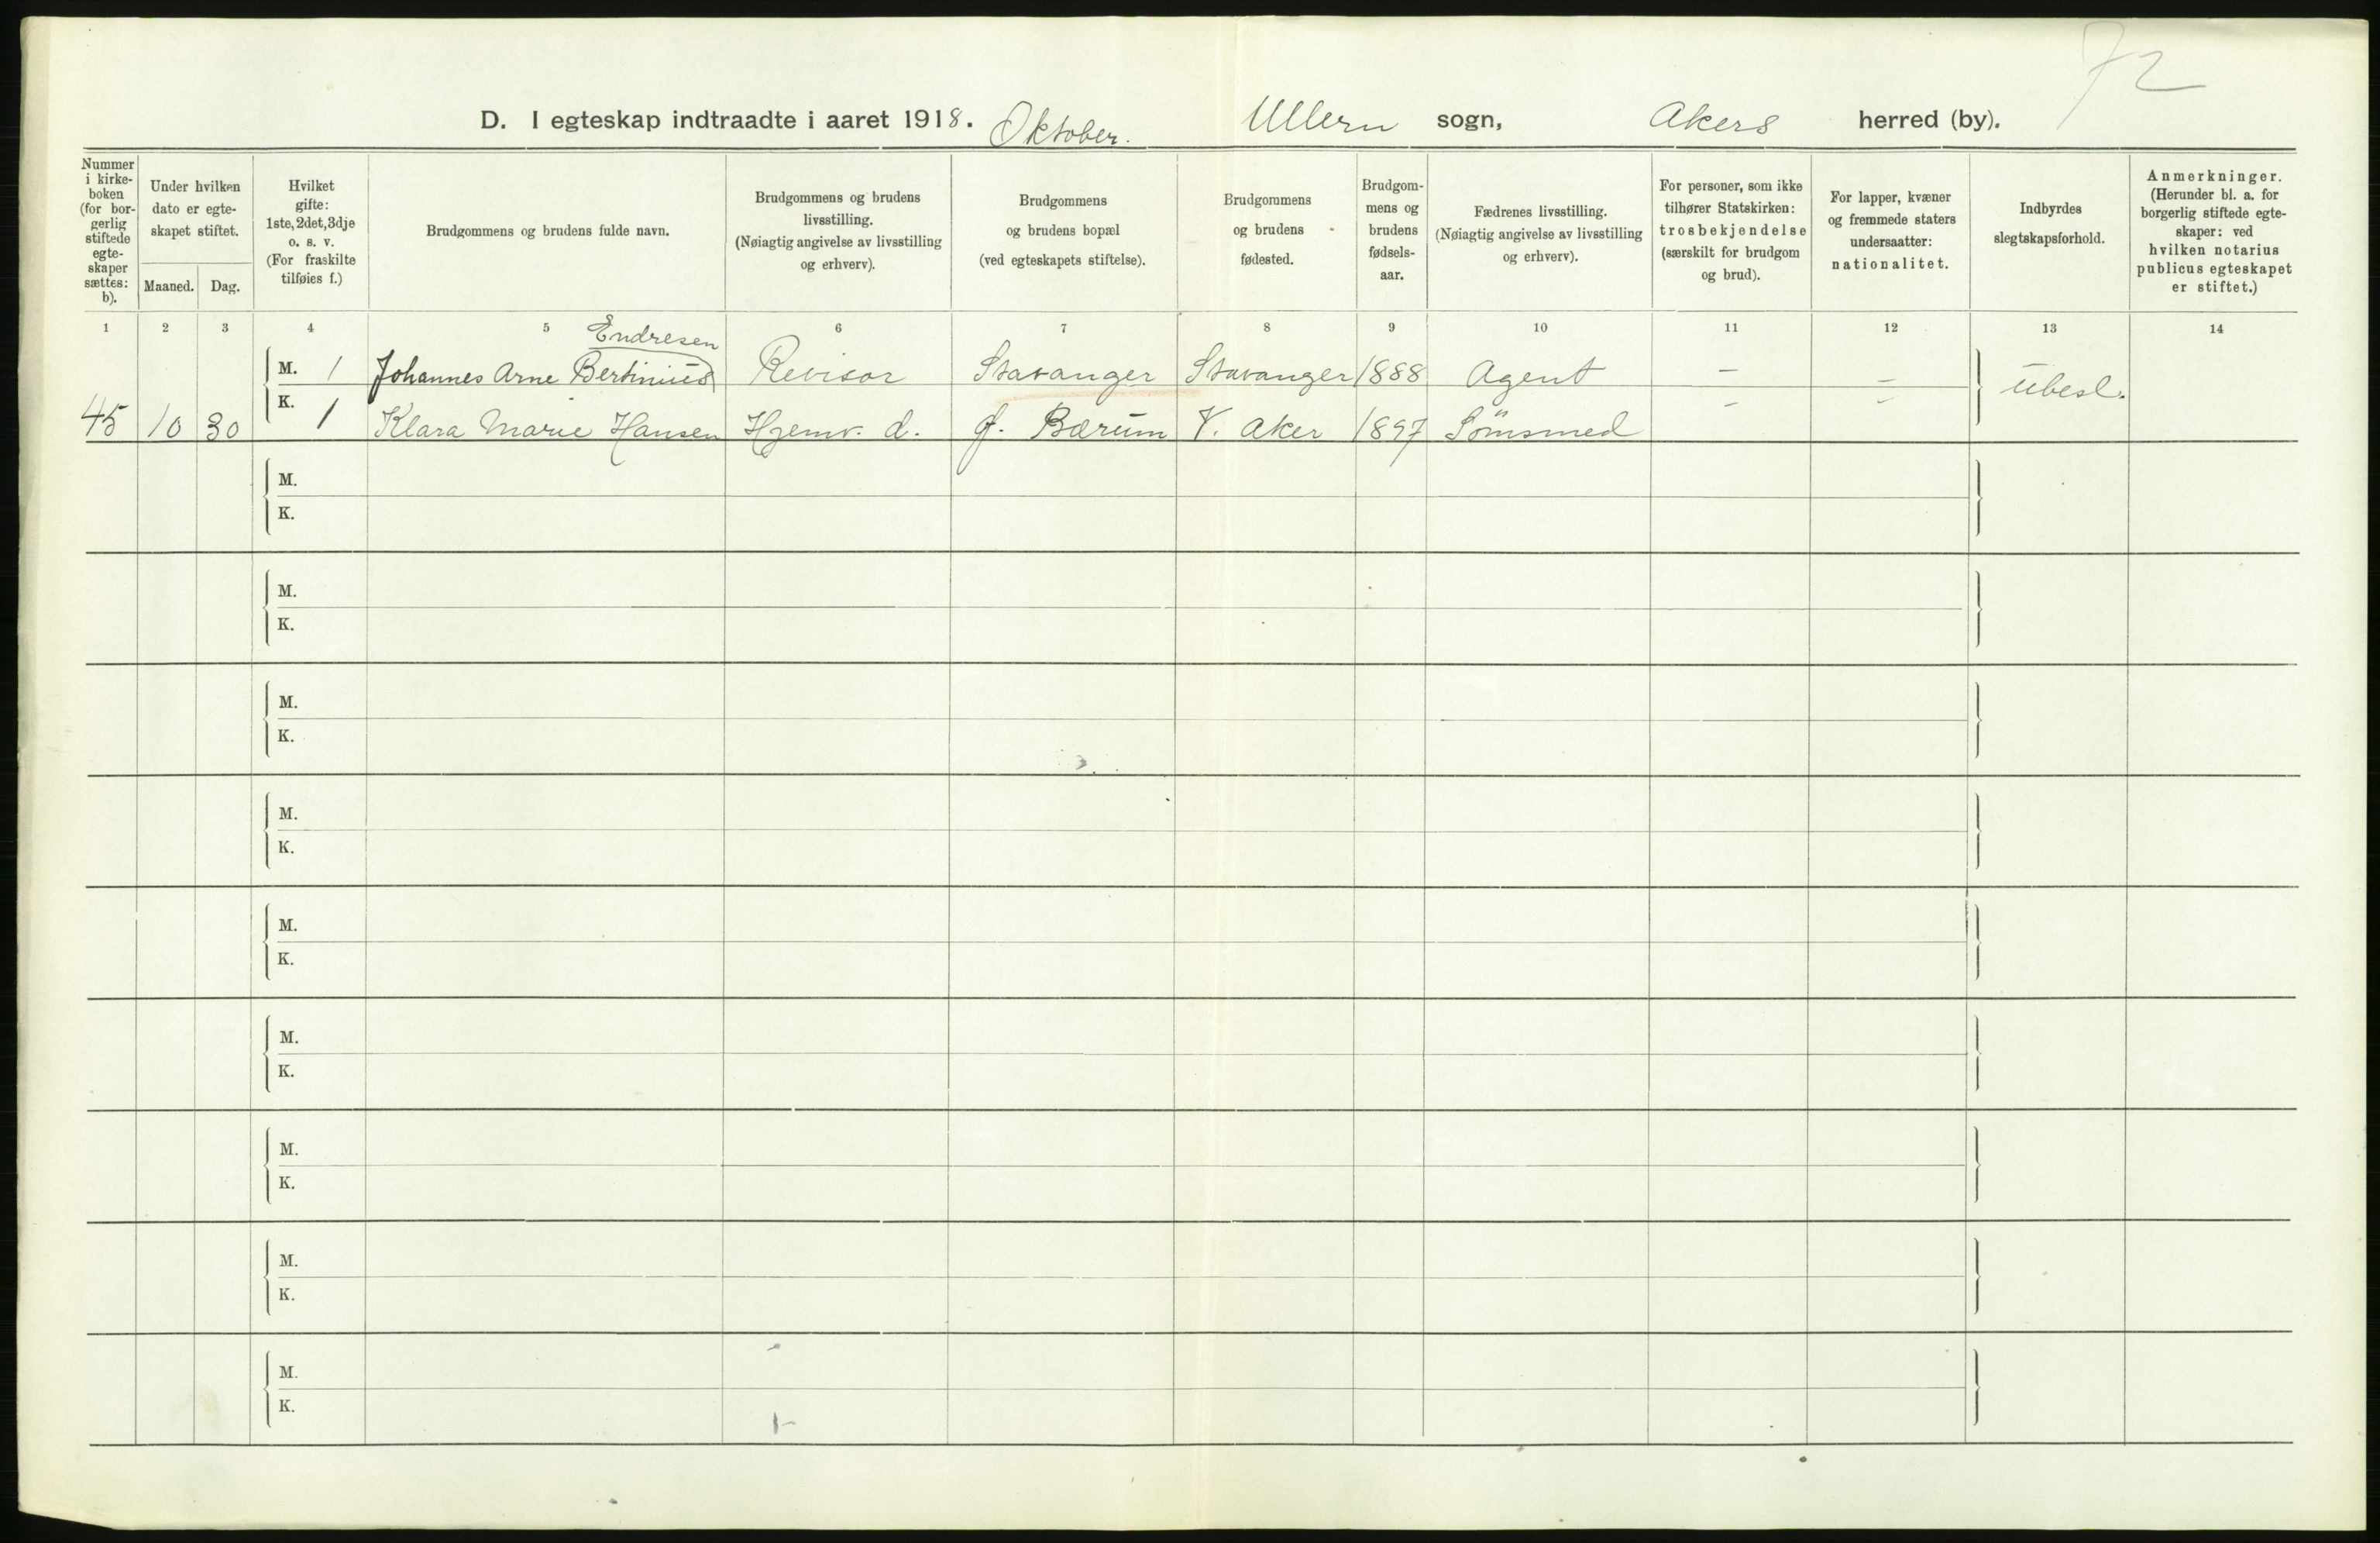 72
D. I egteskap indtraadte i aaret 1918. Oktober. Ullern sogn, Akers herred (by).
Nummer i kirke- boken (for bor- gerlig stiftede egte- skaper sættes: b).
Under hvilken dato er egte- skapet stiftet.
Maaned. Dag.
Hvilket gifte: 1ste, 2det, 3dje o. s. v. (For fraskilte tilføies f.)
Brudgommens og brudens fulde navn.
Brudgommens og brudens livsstilling. (Nøiagtig angivelse av livsstilling og erhverv).
Brudgommens og brudens bopæl (ved egteskapets stiftelse).
Brudgommens og brudens fødested.
Brudgom- mens og brudens fødsels- aar.
Fædrenes livsstilling. (Nøiagtig angivelse av livsstilling og erhverv).
For personer, som ikke tilhører Statskirken: trosbekjendelse (særskilt for brudgom og brud).
For lapper, kvæner og fremmede staters undersaatter: nationalitet.
Indbyrdes slegtskapsforhold.
Anmerkninger. (Herunder bl. a. for borgerlig stiftede egte- skaper: ved hvilken notarius publicus egteskapet er stiftet.)
1 2 3 4 5 6 7 8 9 10 11 12 13 14
Endresen
M. 1 Johannes Arne Bertinius Revisor Stavanger Stavanger 1888 Agent — — Ubesl.
45 10 30 K. 1 Klara Marie Hansen Hjemv. d. Ø. Bærum V. Aker 1897 Sömsmed — —
M.
K.
M.
K.
M.
K.
M.
K.
M.
K.
M.
K.
M.
K.
M.
K.
M.
K.